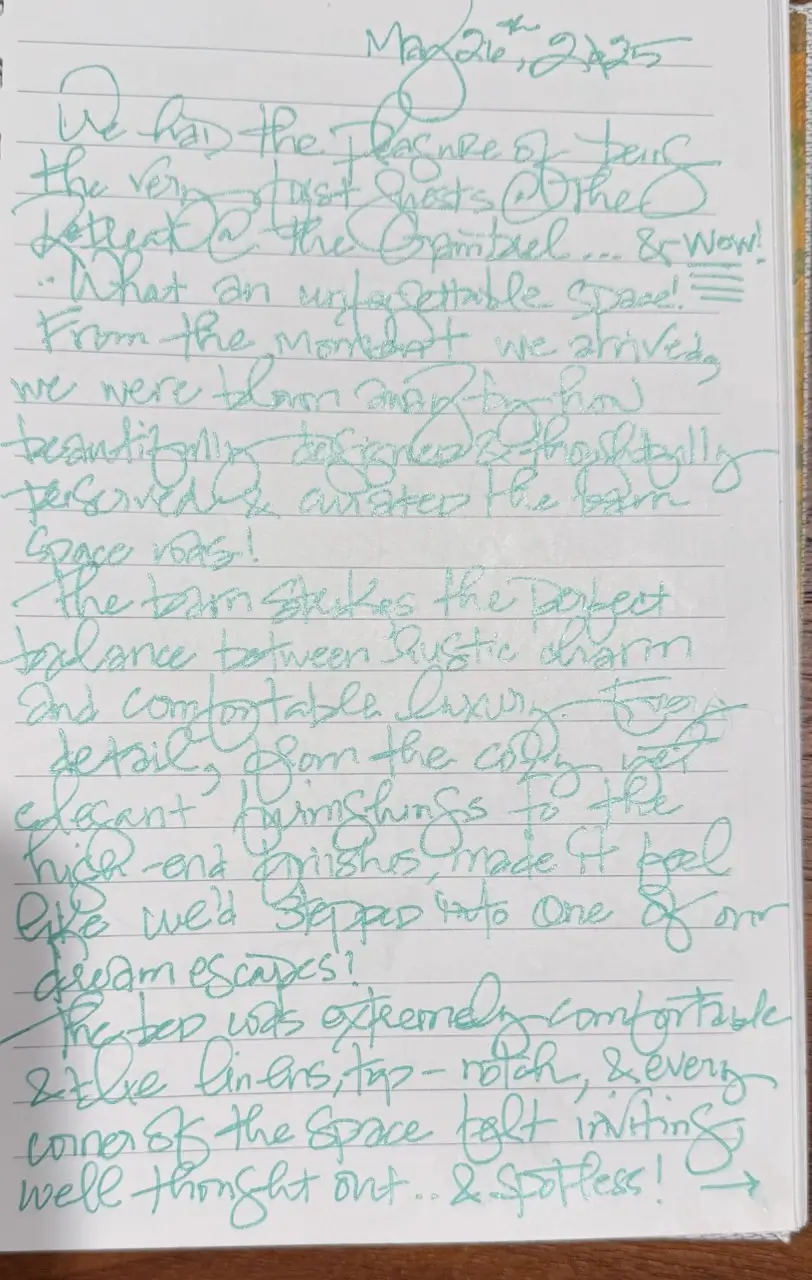 May 26th, 2025
We had the pleasure of being
the very first guests @ the
Retreat @ the ... & WOW!
What an unforgettable space!
From the moment we arrived,
we were blown away by how
beautifully designed & thoughtfully
reserved & curated the barn
space was!
The barn strikes the perfect
balance between rustic charm
and comfortable luxury. Every
detail, from the cozy yet
elegant furnishings to the
high-end finishes, made it feel
like we'd stepped into one of our
dream escapes!
The bed was extremely comfortable
& the linens, top-notch, & every
corner of the space felt inviting,
well thought out.. & spotless! →